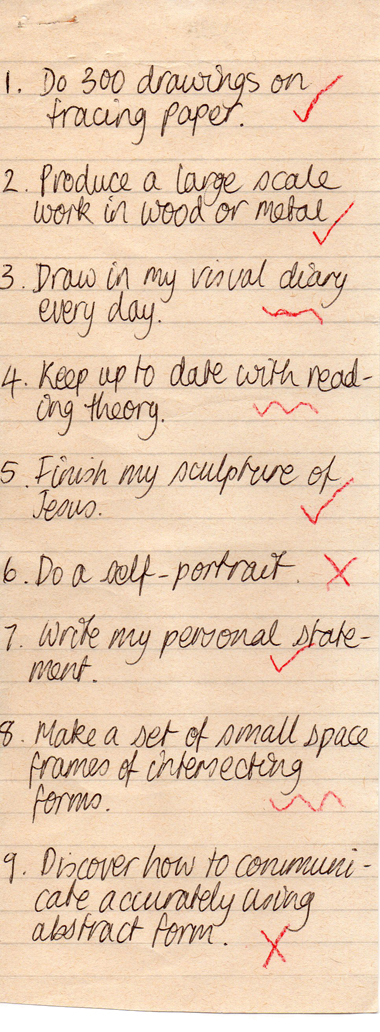 1. Do 300 drawings on
tracing paper.
2. Produce a large scale
work in wood or metal
3. Draw in my visual diary
every day.
4. Keep up to date with read-
ing theory.
5. Finish my sculpture of
Jesus.
6. Do a self-portrait.
7. Write my personal state-
ment.
8. Make a set of small space
frames of intersecting
forms.
9. Discover how to communi-
cate accurately using
abstract form.